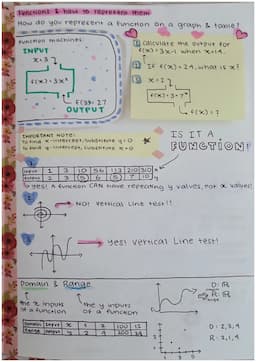 Functions & how to represent them
How do you represent a function on a graph & table?
Function machines:
INPUT
x=3
f(x)=3x²
F(3)=27
OUTPUT
1 Calculate the output for
f(x)=3x-1 when x=4.
2 If f(x)=24, what is x?
3 x=2
f(x)=3·7x
f(x)=?
IMPORTANT NOTE:
To find x-intercept, substitute y=0
To find y-intercept, substitute x=0
IS IT A
FUNCTION?
1
Input 1 3 10 56 113 220 30
Output 2 3 5 6 5 7 10 y
Yes! A function CAN have repeating y values, not x values!
2
NO! Vertical Line test!!
3
Yes! Vertical Line test!
Domain & Range
D: ℝ
R: ℝ
the x inputs
of a function
the y inputs
of a function
Domain Input x 1 2 100 12
Range Output y 2 4 200 24
D: 2,3,4
R: 2,1,4